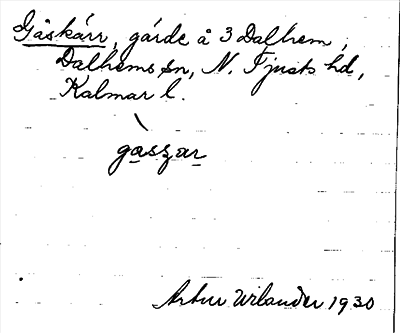 Gåskärr, gärde å 3 Dalhem,
Dalhems sn, N. Tjusts hd,
Kalmar l.
gaszar
Artur Urlander 1930